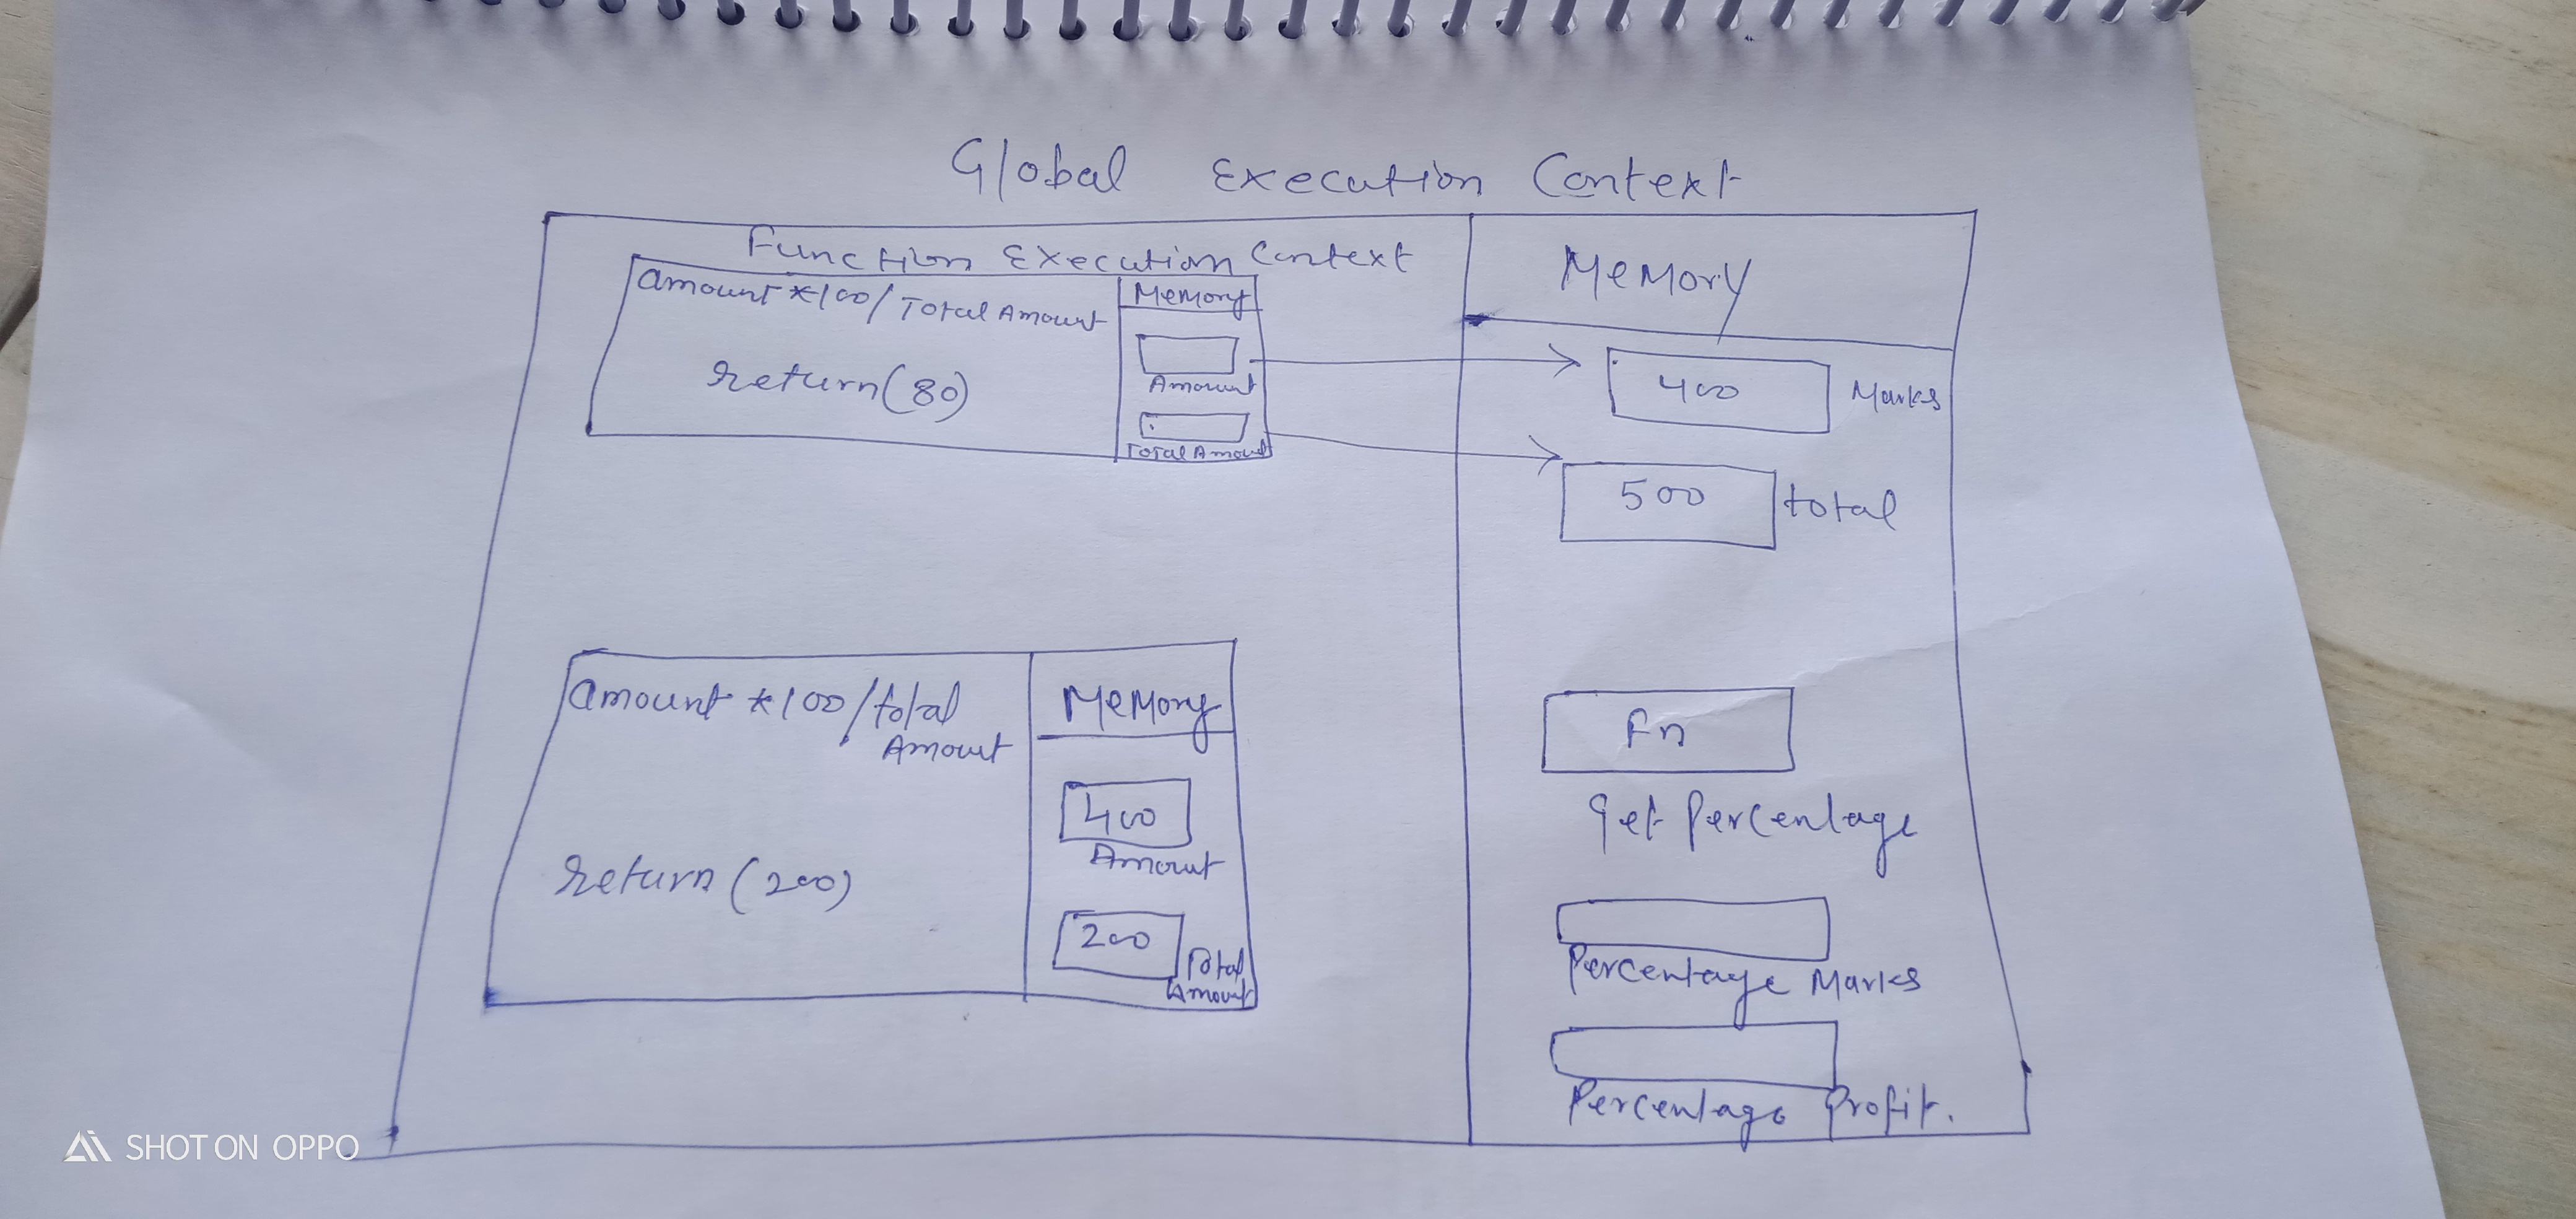 Global Execution Context
Function Execution Context
Memory
amount *100/ Total Amount
Memory
return(80)
Amount
Total Amount
400 Marks
500 total
amount *100/total
Amount
Memory
400
Amount
return (200)
200
Total
Amount
Fn
Get Percentage
Percentage Marks
Percentage Profit.
SHOT ON OPPO